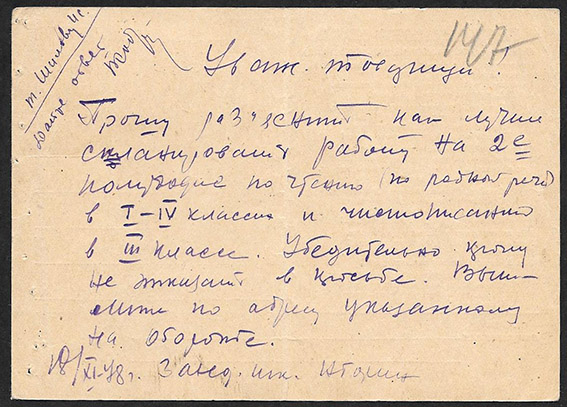 т. Шилову Н.
Дайте ответ
147
Уваж. товарищи!
Прошу раз'яснить как лучше
спланировать работу на 2е
полугодие по чтению по родной речи
в I–IV классах и чистописанию
в III классе. Убедительно прошу
не отказать в просьбе. Выш-
лите по адресу указанному
на обороте.
18/XI-48г. Завед. шк.